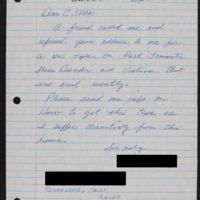 Dear C-SPAN
A friend called me and
refered your address to me for
a VCR tape on Post Traumatic
Stress Disorder and Victims that
was aired recently.
Please send me info on
How to get this tape as
I suffer dramaticly from this
disease.
Sincerely